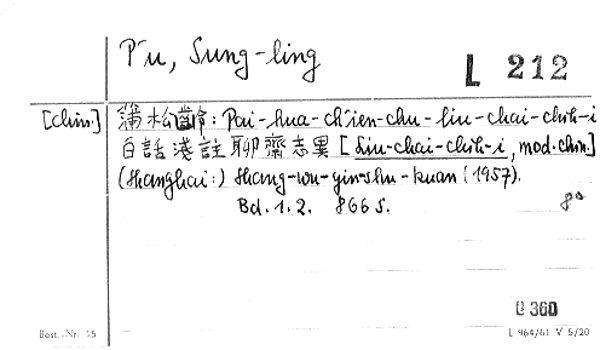 P'u, Sung-ling
L 212
[chin.] 蒲松齡: Pai-hua-ch'ien-chu-liu-chai-chih-i
白話淺註聊齋志異 [Liu-chai-chih-i, mod. chin.]
(Shanghai:) Shang-wu-yin-shu-kuan (1957).
Bd. 1.2. 866 S. 8°
0 360
Best.-Nr. 15 L 964/61 V 5/20